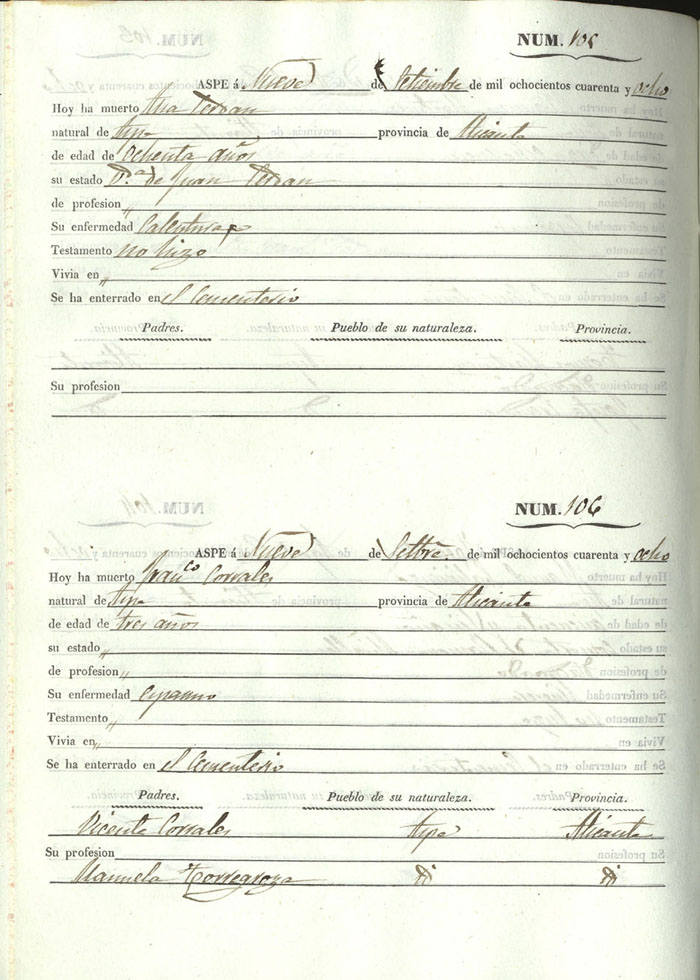 NUM. 105
ASPE á Nueve de Setiembre de mil ochocientos cuarenta y ocho
Hoy ha muerto Ana Terran
natural de Aspe provincia de Alicante
de edad de Ochenta años
su estado V.a de Juan Terran
de profesion "
Su enfermedad Calentura
Testamento no hizo
Vivia en "
Se ha enterrado en el Cementerio
Padres. Pueblo de su naturaleza. Provincia.
Su profesion
NUM. 106
ASPE á Nueve de Setbre. de mil ochocientos cuarenta y ocho
Hoy ha muerto Fran.co Corrales
natural de Aspe provincia de Alicante
de edad de tres años
su estado "
de profesion "
Su enfermedad espasmo
Testamento "
Vivia en "
Se ha enterrado en el Cementerio
Padres. Pueblo de su naturaleza. Provincia.
Vicente Corrales Aspe Alicante
Su profesion
Manuela Torregroza